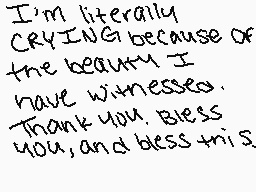 I'm literally
CRYING because of
the beauty I
have witnessed.
Thank you. Bless
you, and bless this